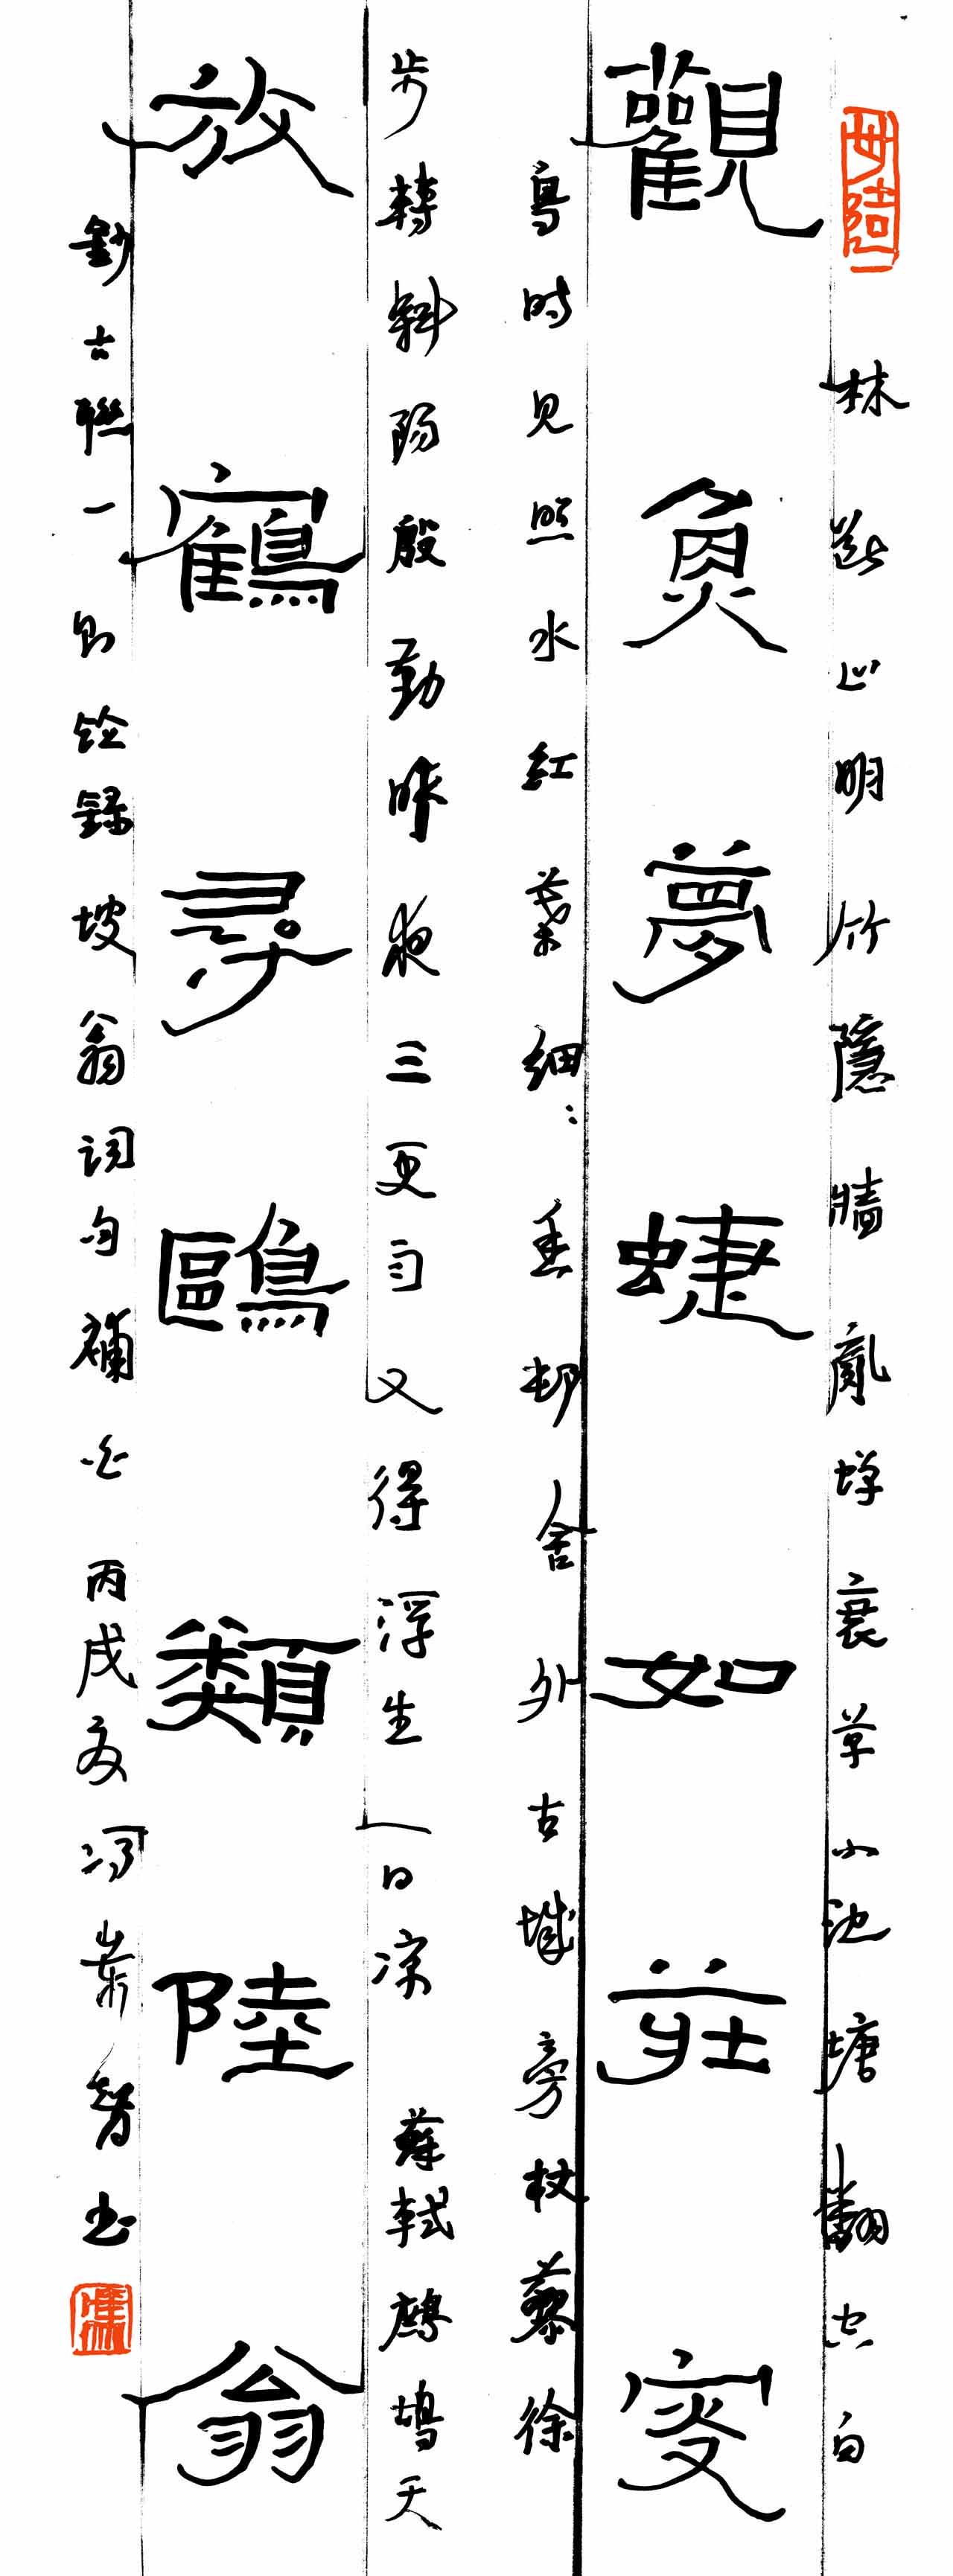 林斷山明竹隱牆亂蟬衰草小池塘翻空白
觀魚夢蜨如莊叜
鳥時見照水紅蕖細〻香邨舍外古城旁杖藜徐
步轉斜陽殷勤昨夜三更雨又得浮生一日涼 蘇軾鷓鴣天
放鶴尋鷗類陸翁
鈔古聯一則録坡翁詞句補白 丙戌夏馮智書
馮